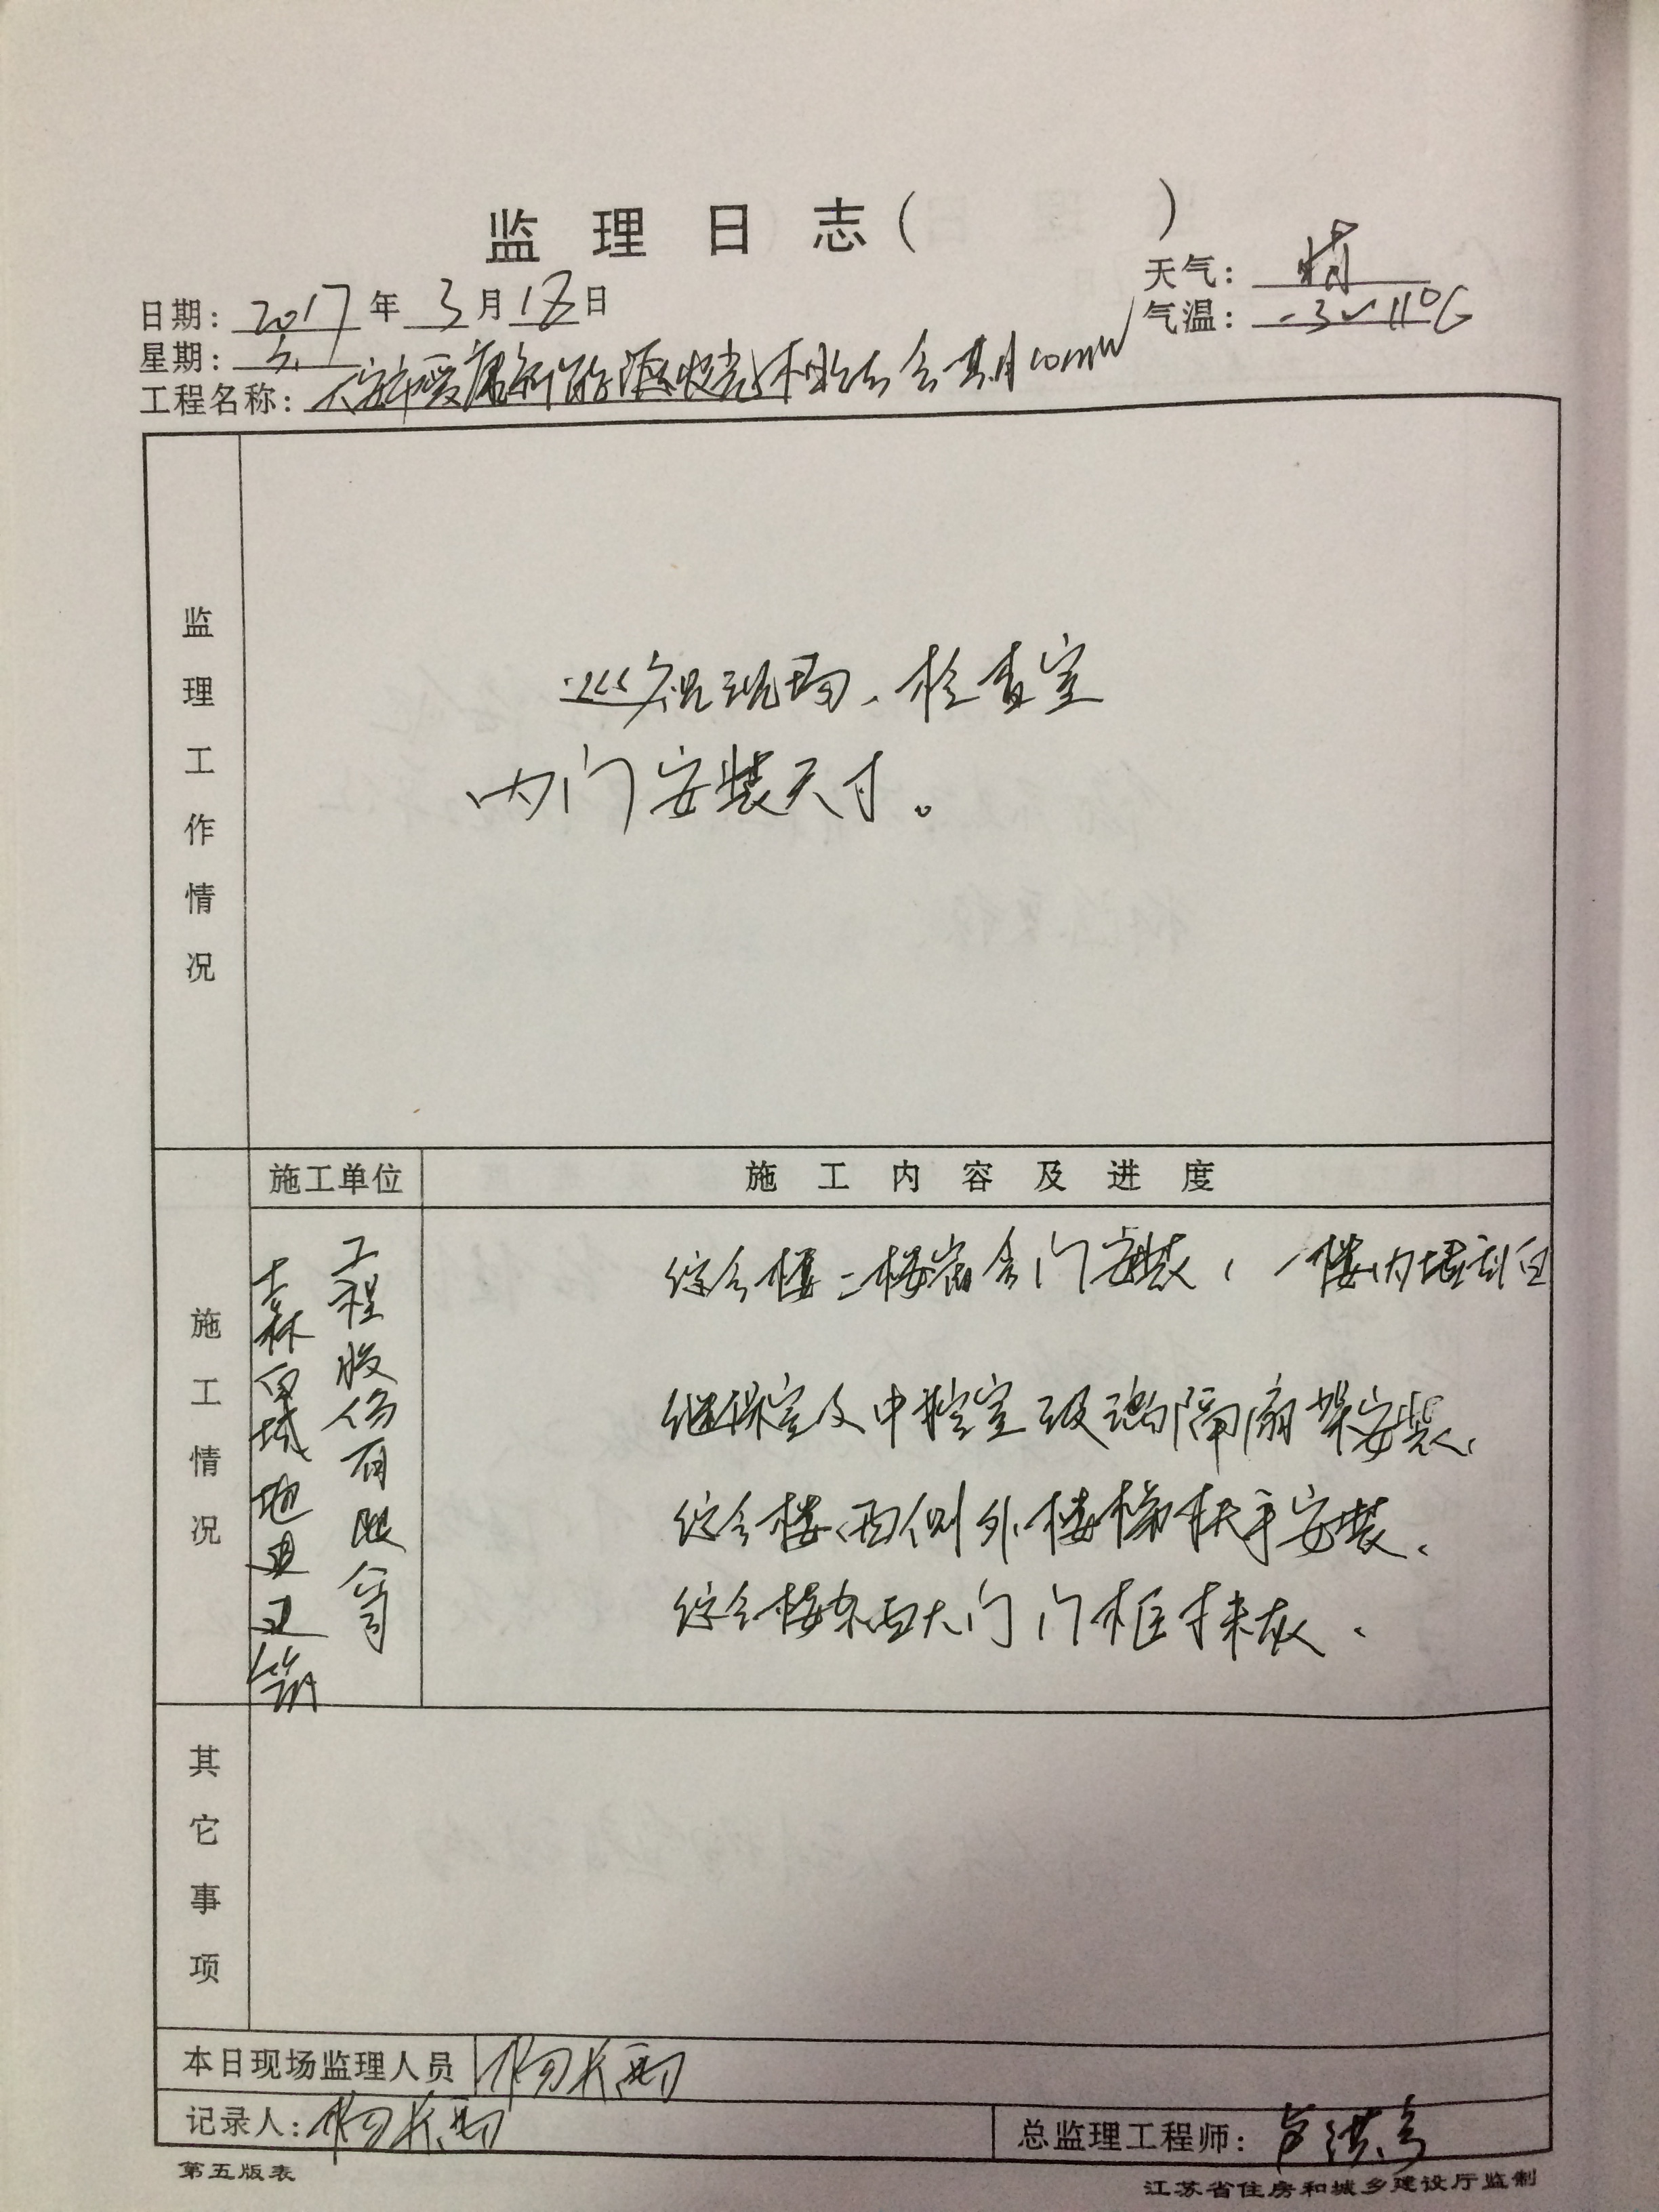 监理日志（ ）
天气：晴
日期：2017年3月18日
气温：-3~11°C
星期：六
工程名称：大安市爱康新能源牧光互补 10MW
监理工作情况
巡视现场、检查室
内门安装尺寸。
施工单位
施工内容及进度
施工情况
吉林 城地 建筑
工程股份有限公司
综合楼二楼宿舍门安装，一楼内墙刮白
继保室及中控室玻璃隔扇架安装、
综合楼西侧外楼梯扶手安装、
综合楼东西大门门框抹灰、
其它事项
本日现场监理人员 杨长雨
记录人：杨长雨
总监理工程师：卢洪
第五版表
江苏省住房和城乡建设厅监制